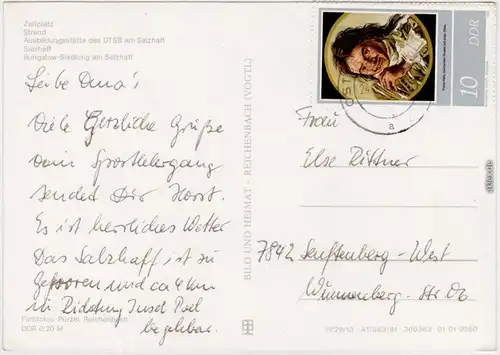 Zeltplatz
Strand
Ausbildungsstätte des DTSB am Salzhaff
Salzhaff
Bungalow-Siedlung am Salzhaff
Liebe Oma's
Viele Herzliche Grüße
vom Sportlehrgang
sendet Dir Horst.
Es ist herrliches Wetter
Das Salzhaff ist zu
Gefroren und ca 4 km
in Richtung Insel Poel
begehbar.
Farbfotos: Pürzel, Reichenbach
DDR 0,20 M
BILD UND HEIMAT · REICHENBACH (VOGTL)
10 DDR
OST
a
Frau
Else Rittner
7842 Senftenberg-West
Wummenberg. Str
A1/583/81 300363 01 01 0350